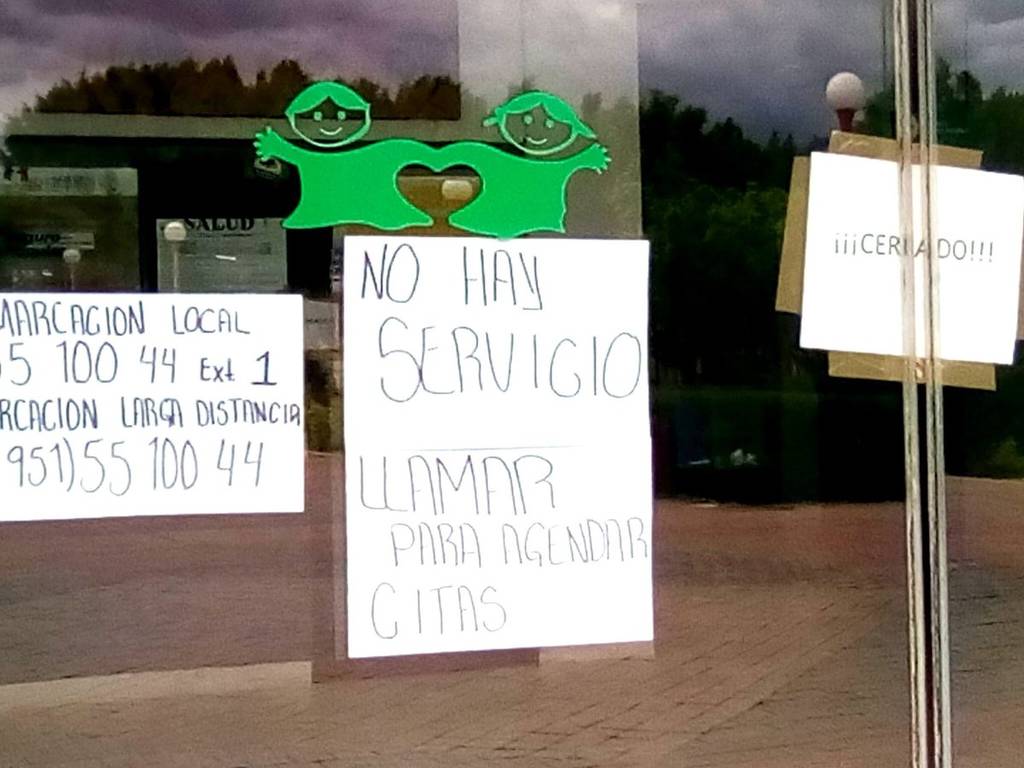 SALUD
MARCACION LOCAL
55 100 44 Ext 1
RCACION LARGA DISTANCIA
951)55 100 44
NO HAY
SERVICIO
LLAMAR
PARA AGENDAR
CITAS
¡¡¡CERRADO!!!